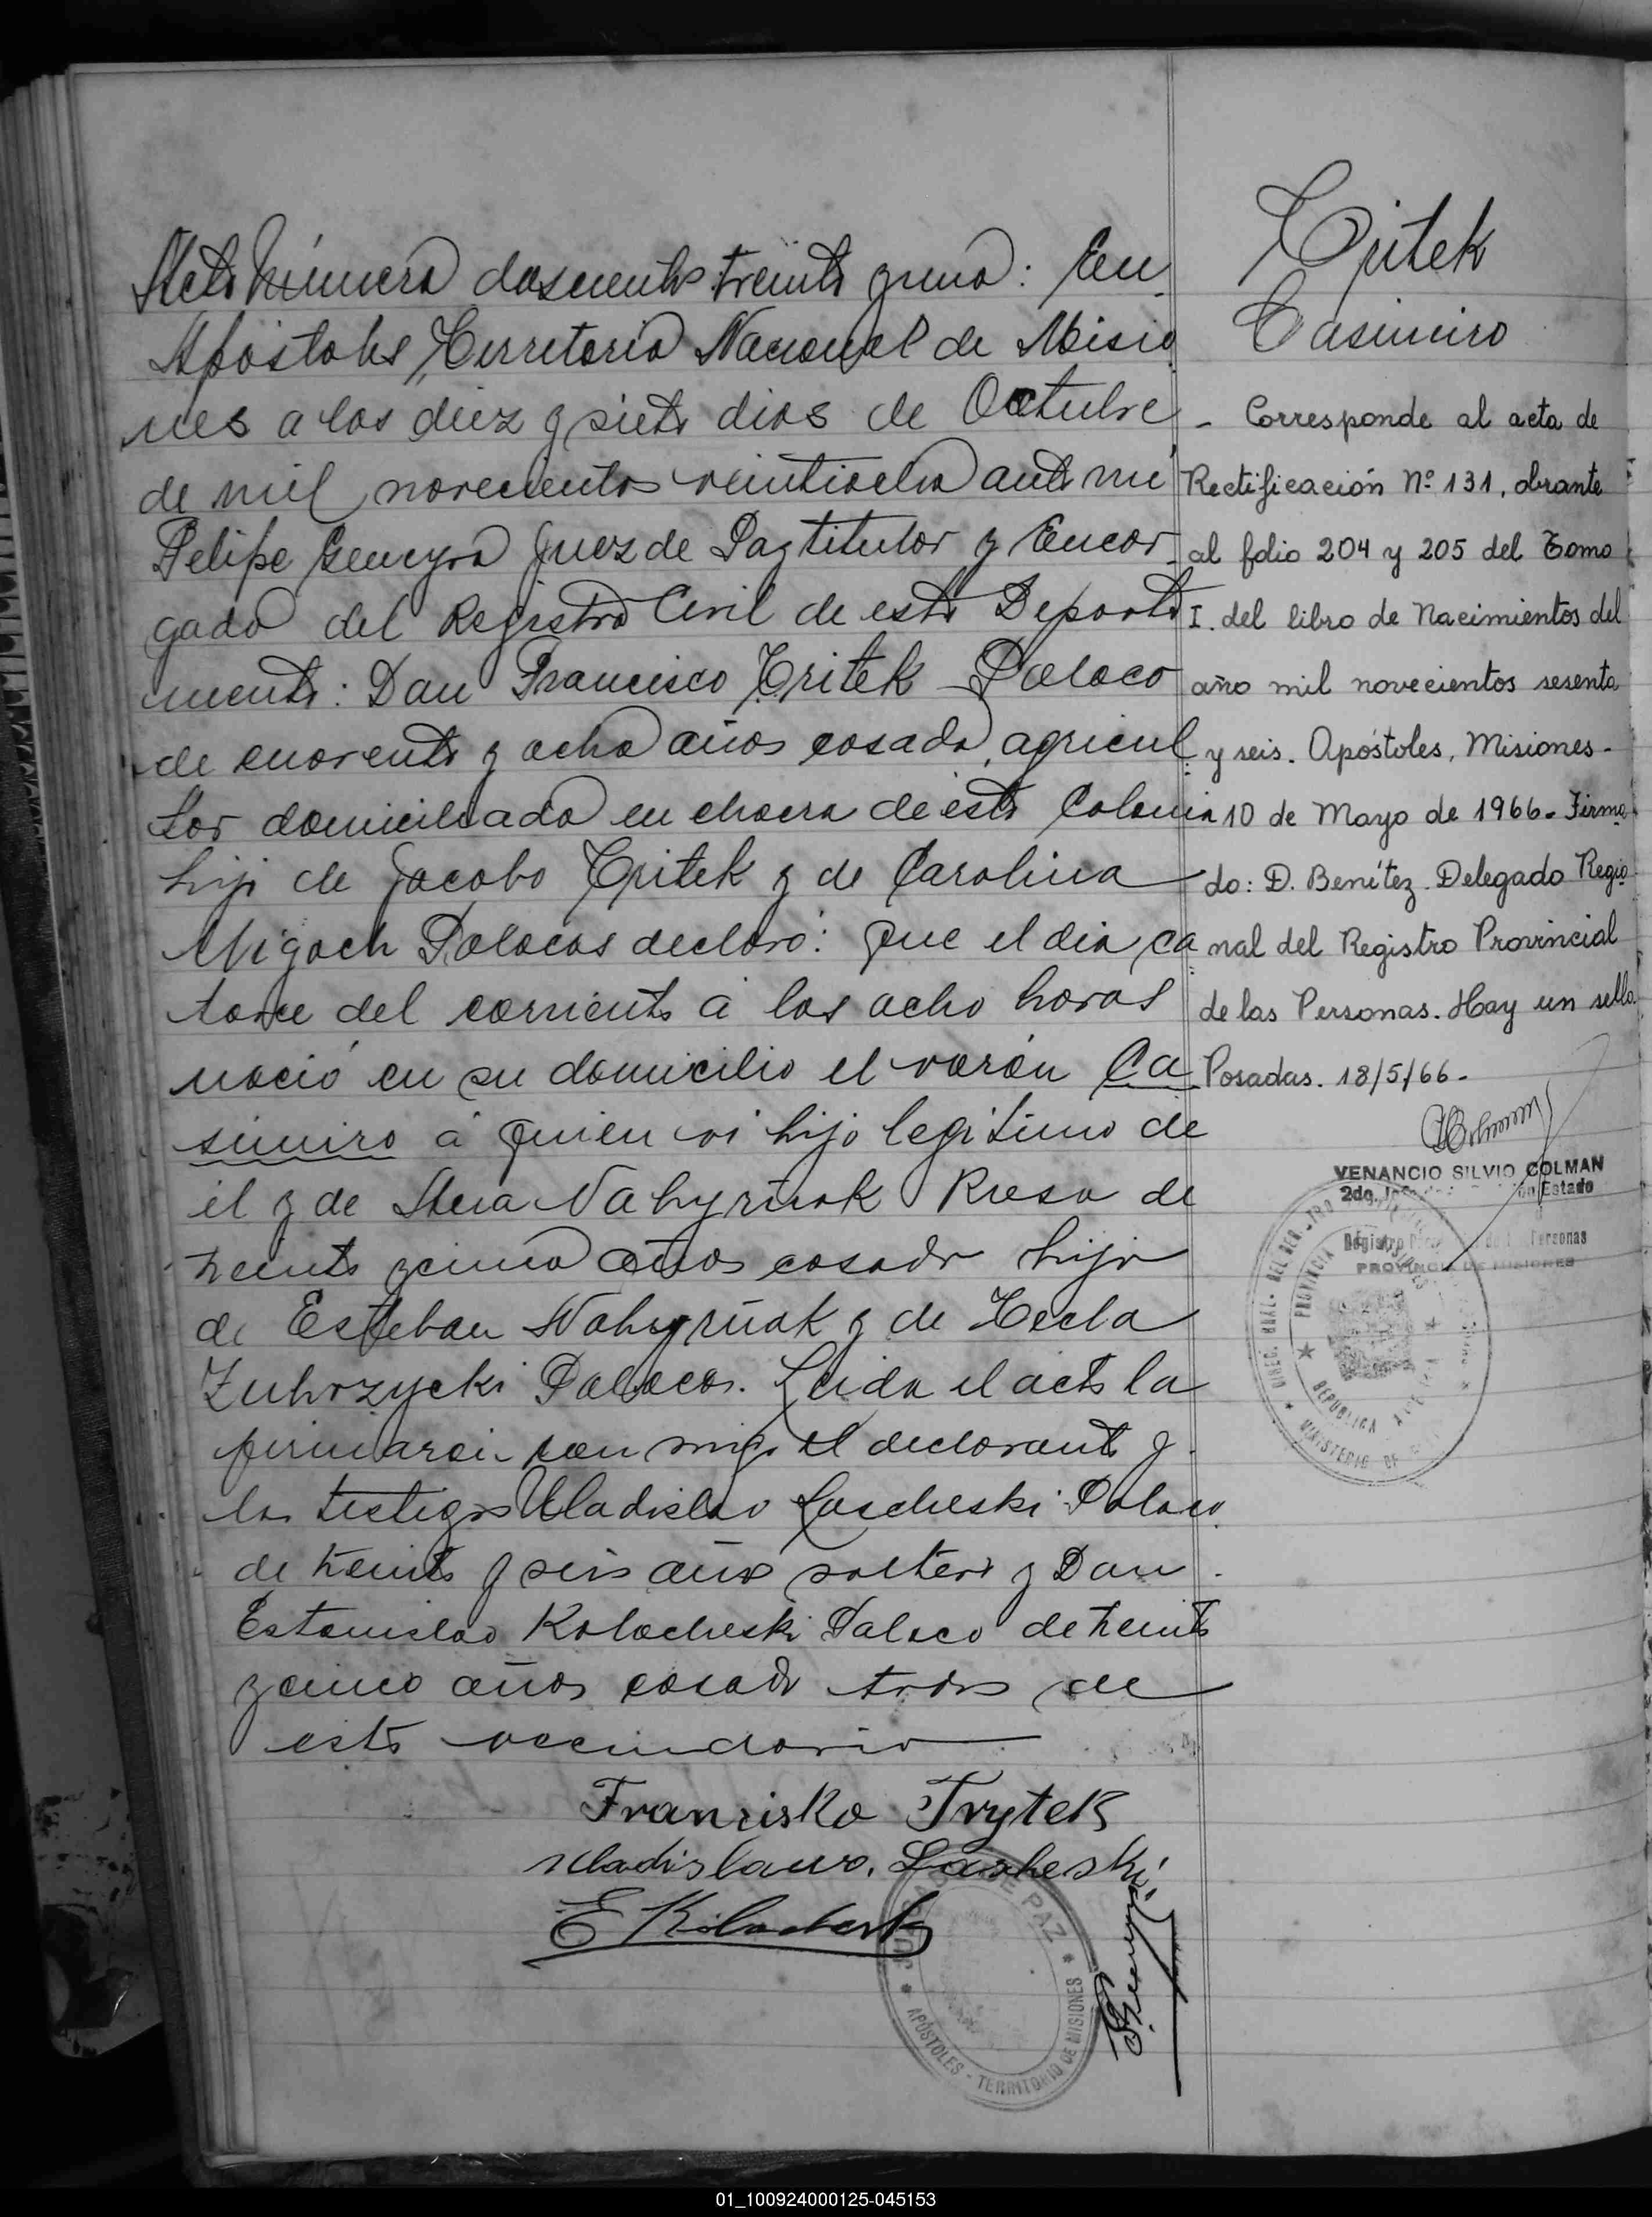 Acta Número doscientos treinta y uno: En
Apóstoles, Territorio Nacional de Misio
nes a los diez y siete dias de Octubre
de mil novecientos veintiocho ante mi
Felipe Geneyro Juez de Paz titular y Encar
gado del Registro Civil de este Departa
mento: Don Francisco Tritek Polaco
de cuarenta y ocho años casado, agricul
tor domiciliado en chacra de esta Colonia
hijo de Jacobo Tritek y de Carolina
Migoch Polacos declaró: Que el dia ca
torce del corriente á las ocho horas
nació en su domicilio el varón Ca
simiro á quien vi hijo legitimo de
él y de Ana Nahyrñak Rusa de
treinta y cinco años casada hija
de Esteban Nahyrñak y de Tecla
Zubrzycki Polacos. Leida el acta la
firmaron conmigo el declarante y
los testigos Uladislao Lascheski Polaco
de treinta y seis años soltero y Don
Estanislao Kolocheski Polaco de treinta
y cinco años casado todos de
este vecindario
Francisko Trytek
Uladislawo. Lascheski
E Kolocheski
JUZGADO DE PAZ
APÓSTOLES - TERRITORIO DE MISIONES
Tritek
Casimiro
- Corresponde al acta de
Rectificación Nº 131, obrante
al folio 204 y 205 del Tomo
I. del libro de Nacimientos del
año mil novecientos sesenta
y seis. Apóstoles, Misiones.
10 de Mayo de 1966. Firma
do: D. Benítez. Delegado Regio
nal del Registro Provincial
de las Personas. Hay un sello
Posadas. 18/5/66.
VENANCIO SILVIO COLMAN
2do. Estado
Registro Personas
PROVINCIA DE MISIONES
PROVINCIA DE MISIONES
REPUBLICA ARGENTINA
MINISTERIO DE
01_100924000125-045153